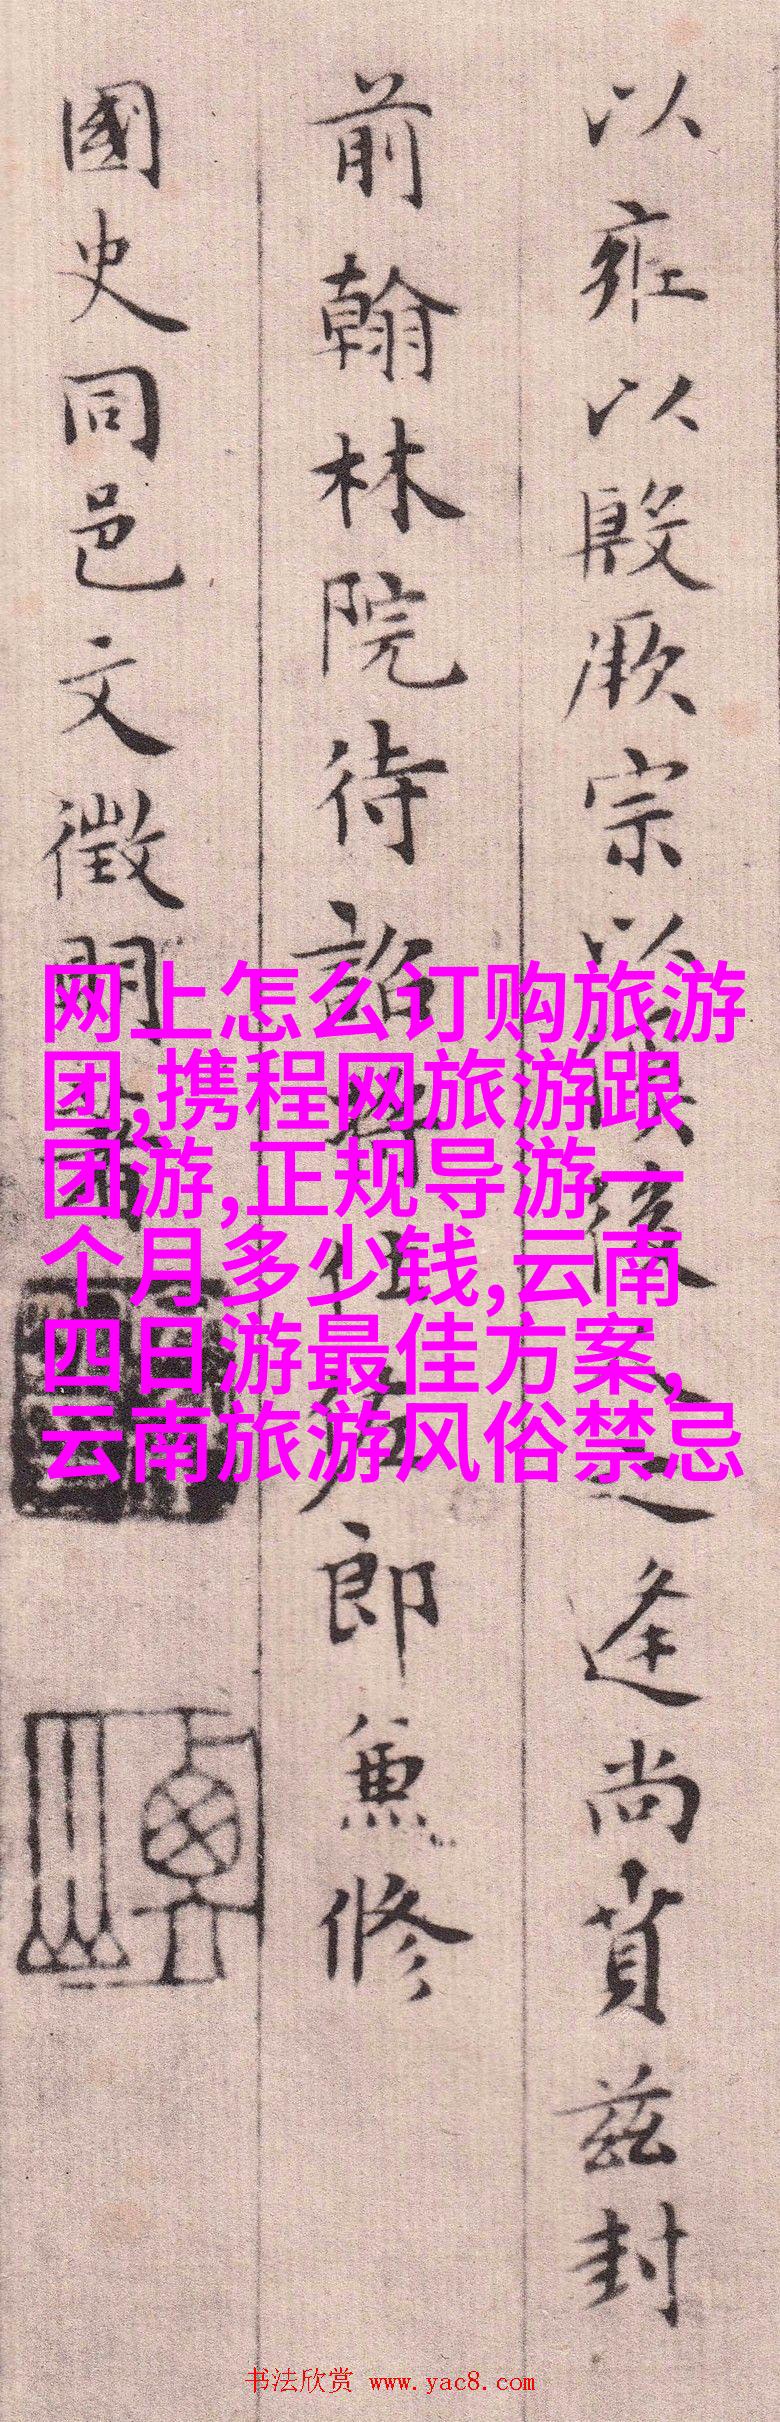 以雍以殷厥宗以俟後人之逢尚賁茲封
前翰林院待詔將仕佐郎兼修
國史同邑文徵明著
网上怎么订购旅游
团,携程网旅游跟
团游,正规导游一
个月多少钱,云南
四日游最佳方案,
云南旅游风俗禁忌
书法欣赏 www.yac8.com